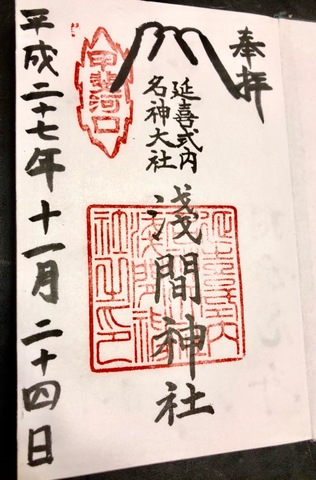 奉拝
延喜式内
名神大社
浅間神社
甲斐河口
平成二十七年十一月二十四日